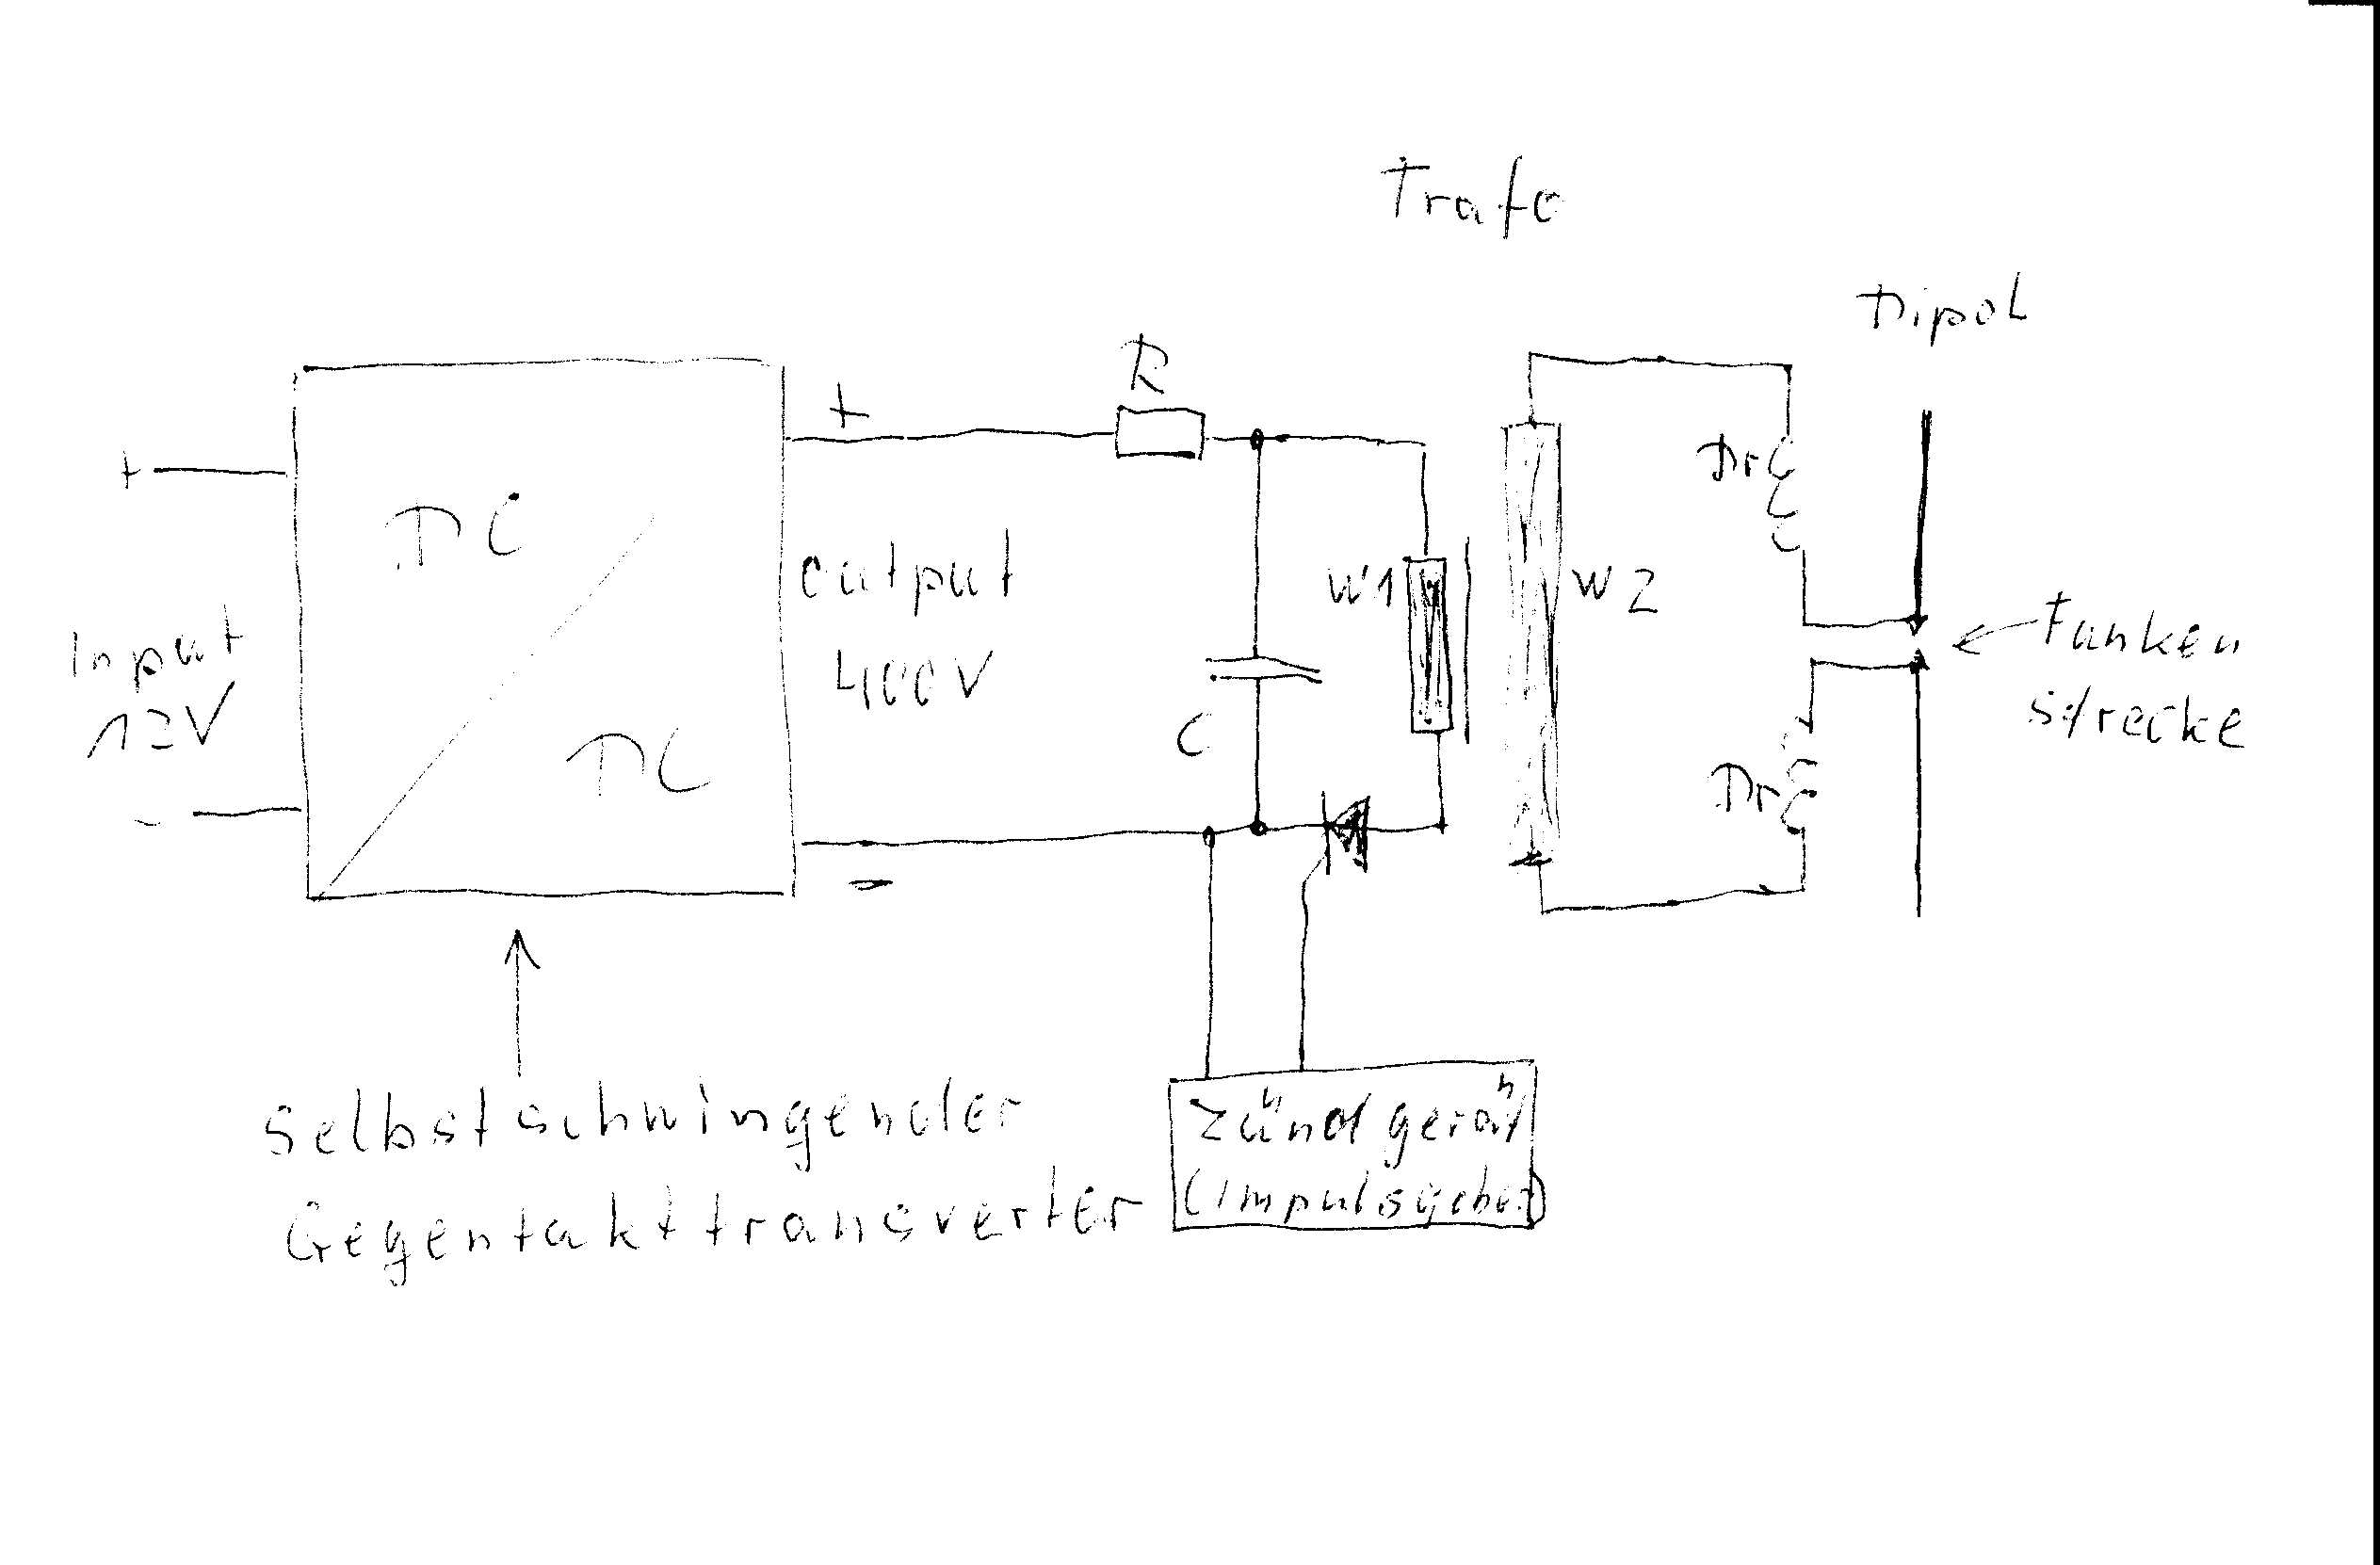 Trafo
Dipol
R
+
+
DC
Dr
output
400V
W1
W2
Input
12V
Funken
strecke
C
DC
Dr
-
-
Selbstschwingender
Gegentakttransverter
Zündgerät
(Impulsgeber)